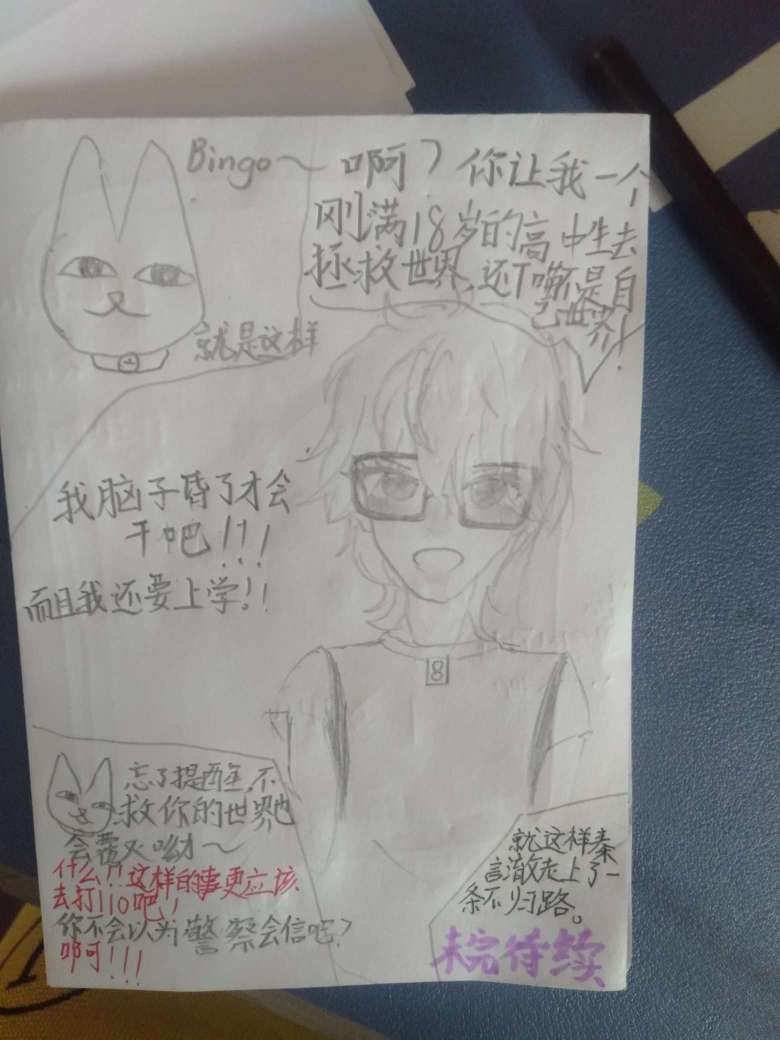 Bingo~
就是这样
啊?你让我一个
刚满18岁的高中生去
拯救世界,还TM不是自
己世界!
我脑子昏了才会
干吧!?!
而且我还要上学!!
8
忘了提醒,不
救你的世界也
会覆灭呦~
什么!!这样的事更应该
去打110吧!
你不会以为警察会信吧?
啊!!!
就这样秦
言澈走上了一
条不归路。
未完待续